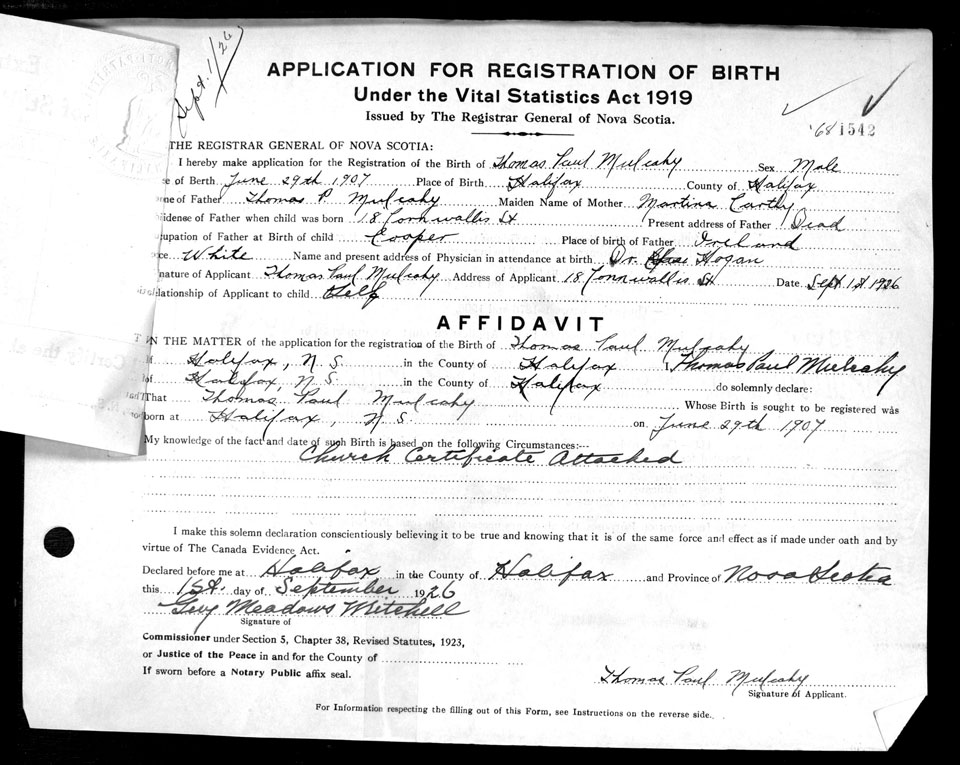 Sept. 1/26
APPLICATION FOR REGISTRATION OF BIRTH
Under the Vital Statistics Act 1919
Issued by The Registrar General of Nova Scotia.
'68 1542
THE REGISTRAR GENERAL OF NOVA SCOTIA:
I hereby make application for the Registration of the Birth of Thomas Paul Mulcahy Sex Male
of Berth June 29th 1907 Place of Birth Halifax County of Halifax
of Father Thomas P. Mulcahy Maiden Name of Mother Martina Carthy
of Father when child was born 18 Cornwallis St Present address of Father Dead
of Father at Birth of child Cooper Place of birth of Father Ireland
White Name and present address of Physician in attendance at birth Dr. Hogan
nature of Applicant Thomas Paul Mulcahy Address of Applicant 18 Cornwallis St Date Sept 1st 1926
Relationship of Applicant to child Self
AFFIDAVIT
IN THE MATTER of the application for the registration of the Birth of Thomas Paul Mulcahy
of Halifax, N.S. in the County of Halifax I, Thomas Paul Mulcahy
of Halifax, N.S. in the County of Halifax do solemnly declare:
That Thomas Paul Mulcahy Whose Birth is sought to be registered was
born at Halifax, N.S. on June 29th 1907
My knowledge of the fact and date of such Birth is based on the following Circumstances:--
Church Certificate Attached
I make this solemn declaration conscientiously believing it to be true and knowing that it is of the same force and effect as if made under oath and by
virtue of The Canada Evidence Act.
Declared before me at Halifax in the County of Halifax and Province of Nova Scotia
this 1st. day of September 1926
Guy Meadows Mitchell
Signature of
Commissioner under Section 5, Chapter 38, Revised Statutes, 1923,
or Justice of the Peace in and for the County of
If sworn before a Notary Public affix seal.
Thomas Paul Mulcahy
Signature of Applicant.
For Information respecting the filling out of this Form, see Instructions on the reverse side.